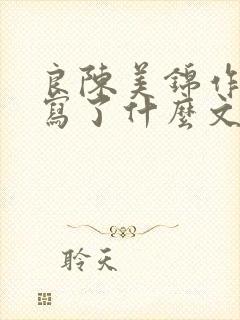 良陳美錦作
寫了什麼文
聆天